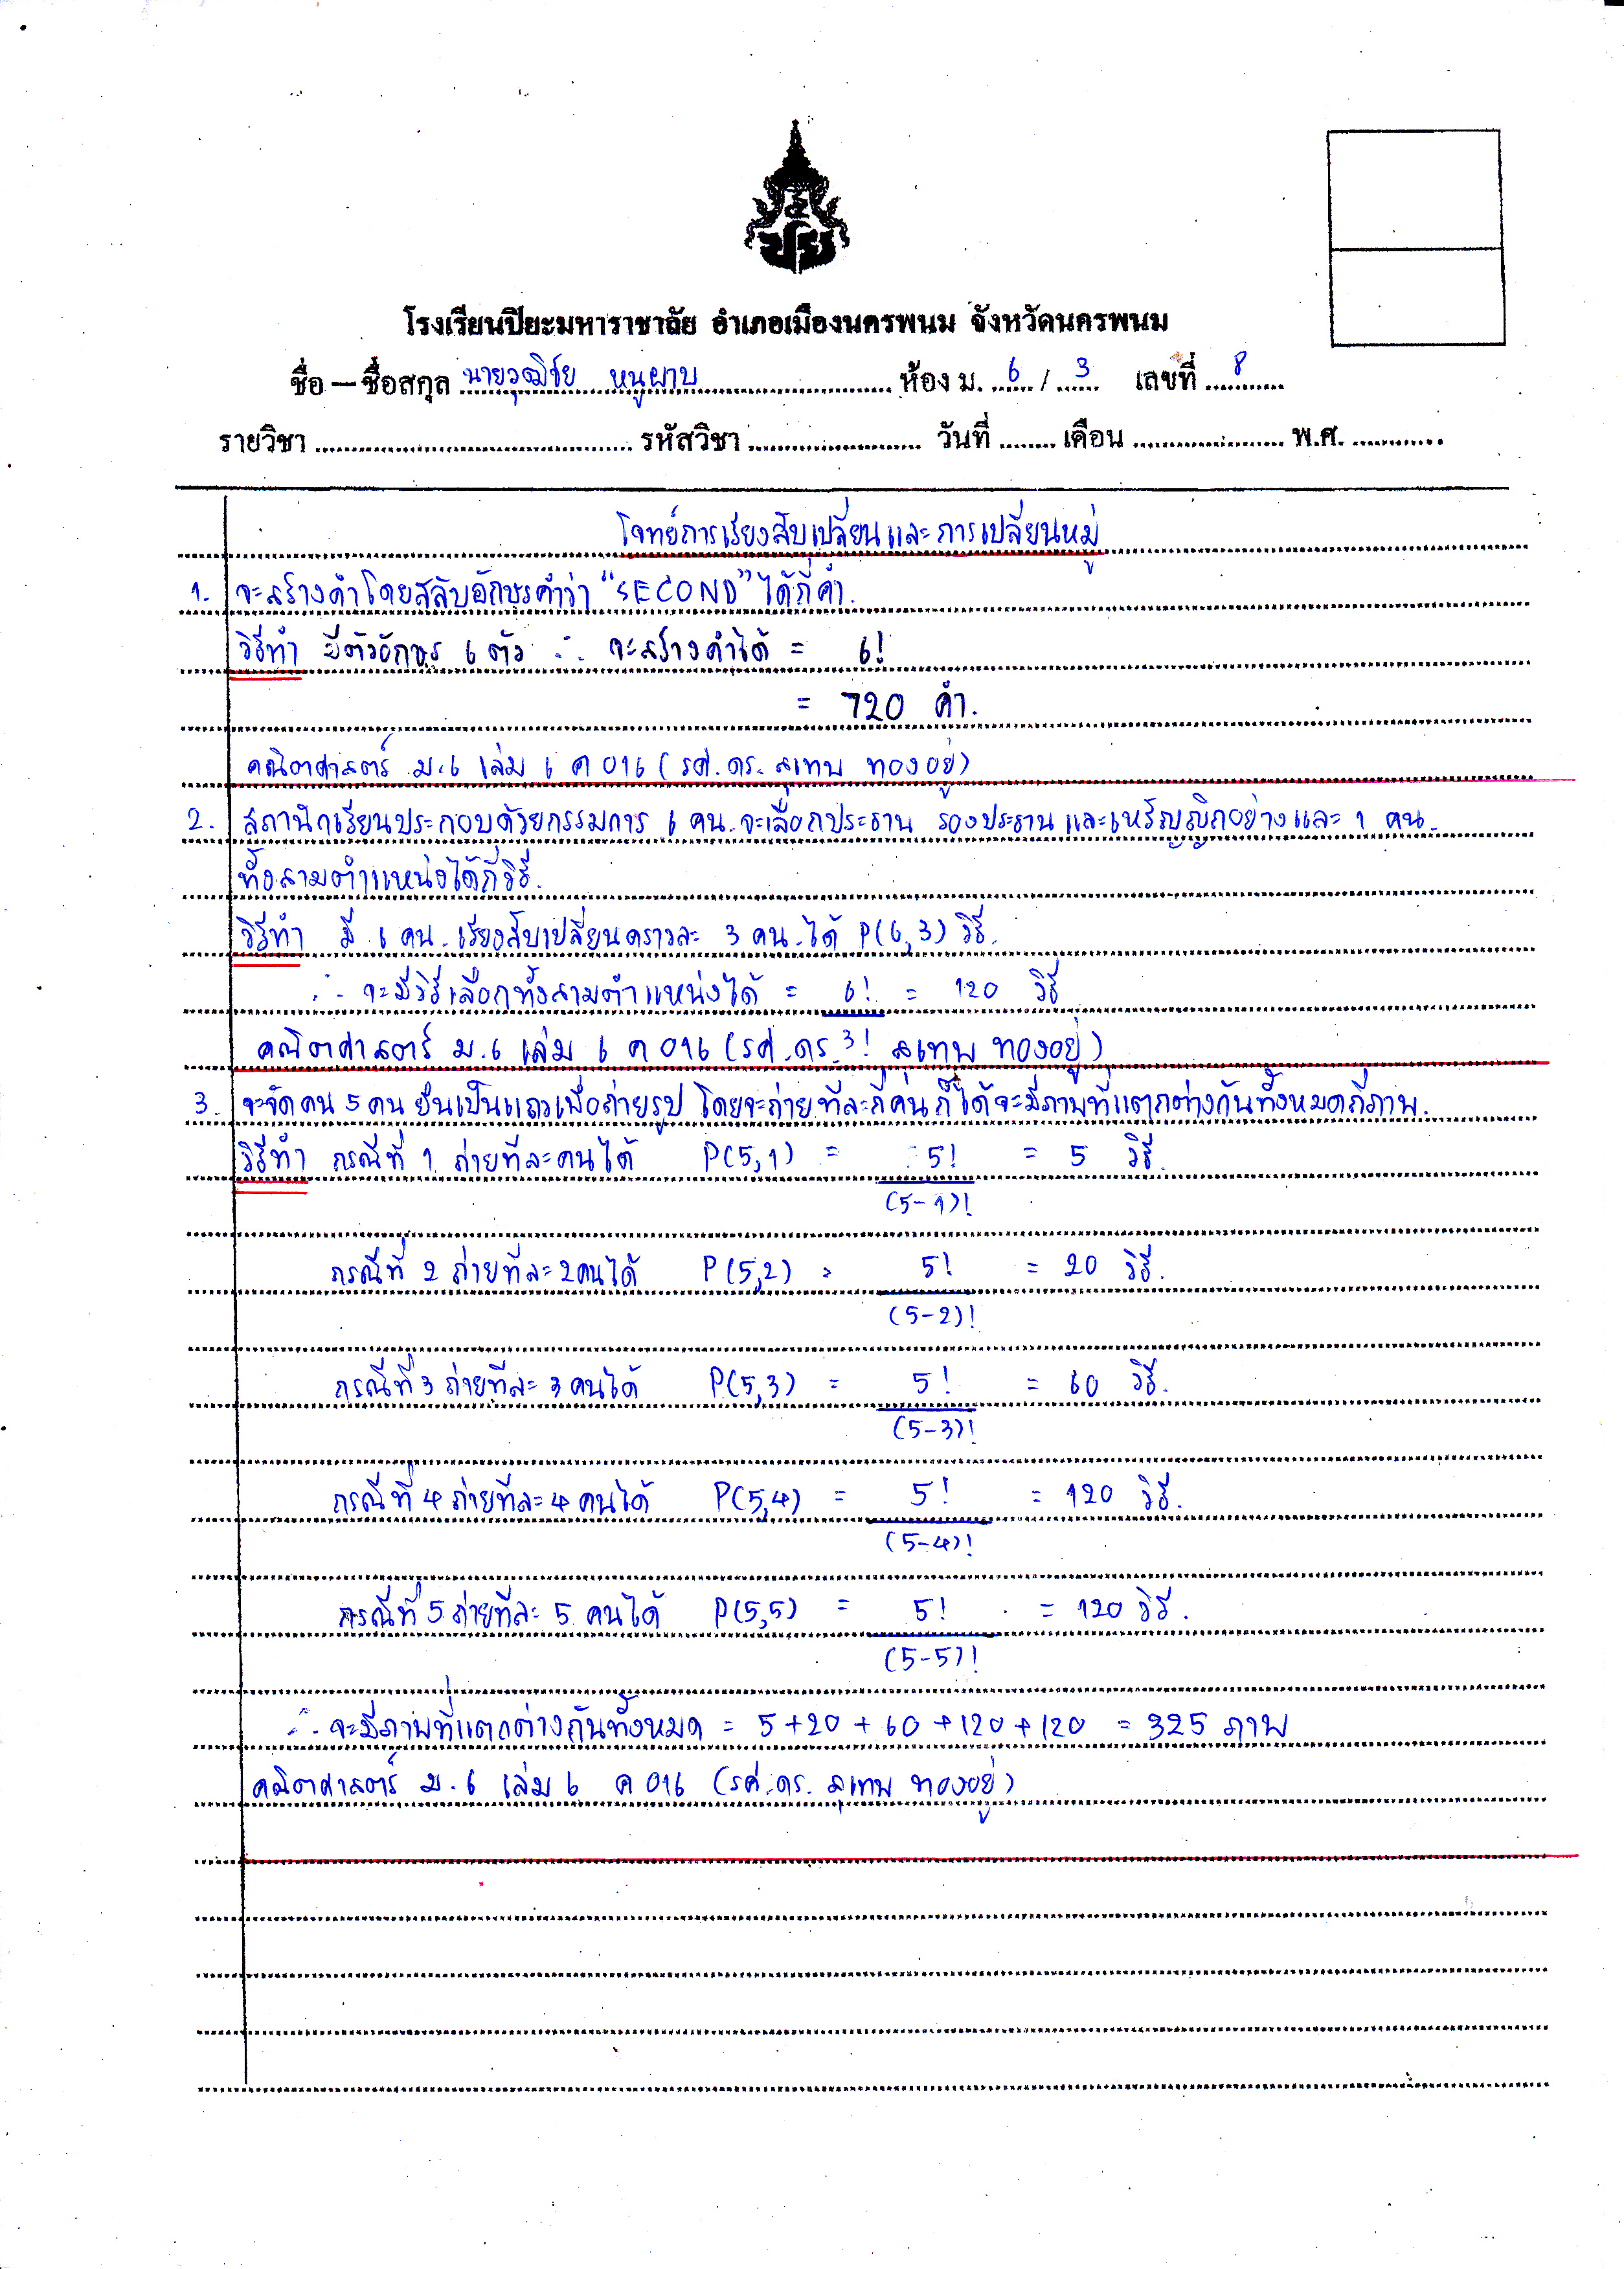 โรงเรียนปิยะมหาราชาลัย อำเภอเมืองนครพนม จังหวัดนครพนม
ชื่อ – ชื่อสกุล นายวุฒิชัย หนูผาบ ห้อง ม. 6 / 3 เลขที่ 8
รายวิชา ........ รหัสวิชา ........ วันที่ ........ เดือน ........ พ.ศ. ........
โจทย์การเรียงสับเปลี่ยนและการเปลี่ยนหมู่
1. จะสร้างคำโดยสลับอักษรคำว่า "SECOND" ได้กี่คำ.
วิธีทำ มีตัวอักษร 6 ตัว ∴ จะสร้างคำได้ = 6!
= 720 คำ.
คณิตศาสตร์ ม.6 เล่ม 6 ค 016 (รศ.ดร. สุเทพ ทองอยู่)
2. สภานักเรียนประกอบด้วยกรรมการ 6 คน จะเลือกประธาน รองประธาน และเหรัญญิกอย่างและ 1 คน.
ทั้งสามตำแหน่งได้กี่วิธี.
วิธีทำ มี 6 คน เรียงสับเปลี่ยนคราวละ 3 คน ได้ P(6,3) วิธี.
∴ จะมีวิธีเลือกทั้งสามตำแหน่งได้ = 6! = 120 วิธี
3!
คณิตศาสตร์ ม.6 เล่ม 6 ค 016 (รศ.ดร. สุเทพ ทองอยู่)
3. จะจัดคน 5 คน ยืนเป็นแถวเพื่อถ่ายรูป โดยจะถ่ายทีละกี่คนก็ได้จะมีภาพที่แตกต่างกันทั้งหมดกี่ภาพ.
วิธีทำ กรณีที่ 1 ถ่ายทีละคนได้ P(5,1) = 5! = 5 วิธี.
(5-1)!
กรณีที่ 2 ถ่ายทีละ 2 คนได้ P(5,2) = 5! = 20 วิธี.
(5-2)!
กรณีที่ 3 ถ่ายทีละ 3 คนได้ P(5,3) = 5! = 60 วิธี.
(5-3)!
กรณีที่ 4 ถ่ายทีละ 4 คนได้ P(5,4) = 5! = 120 วิธี.
(5-4)!
กรณีที่ 5 ถ่ายทีละ 5 คนได้ P(5,5) = 5! = 120 วิธี.
(5-5)!
∴ จะมีภาพที่แตกต่างกันทั้งหมด = 5+20+60+120+120 = 325 ภาพ
คณิตศาสตร์ ม.6 เล่ม 6 ค 016 (รศ.ดร. สุเทพ ทองอยู่)